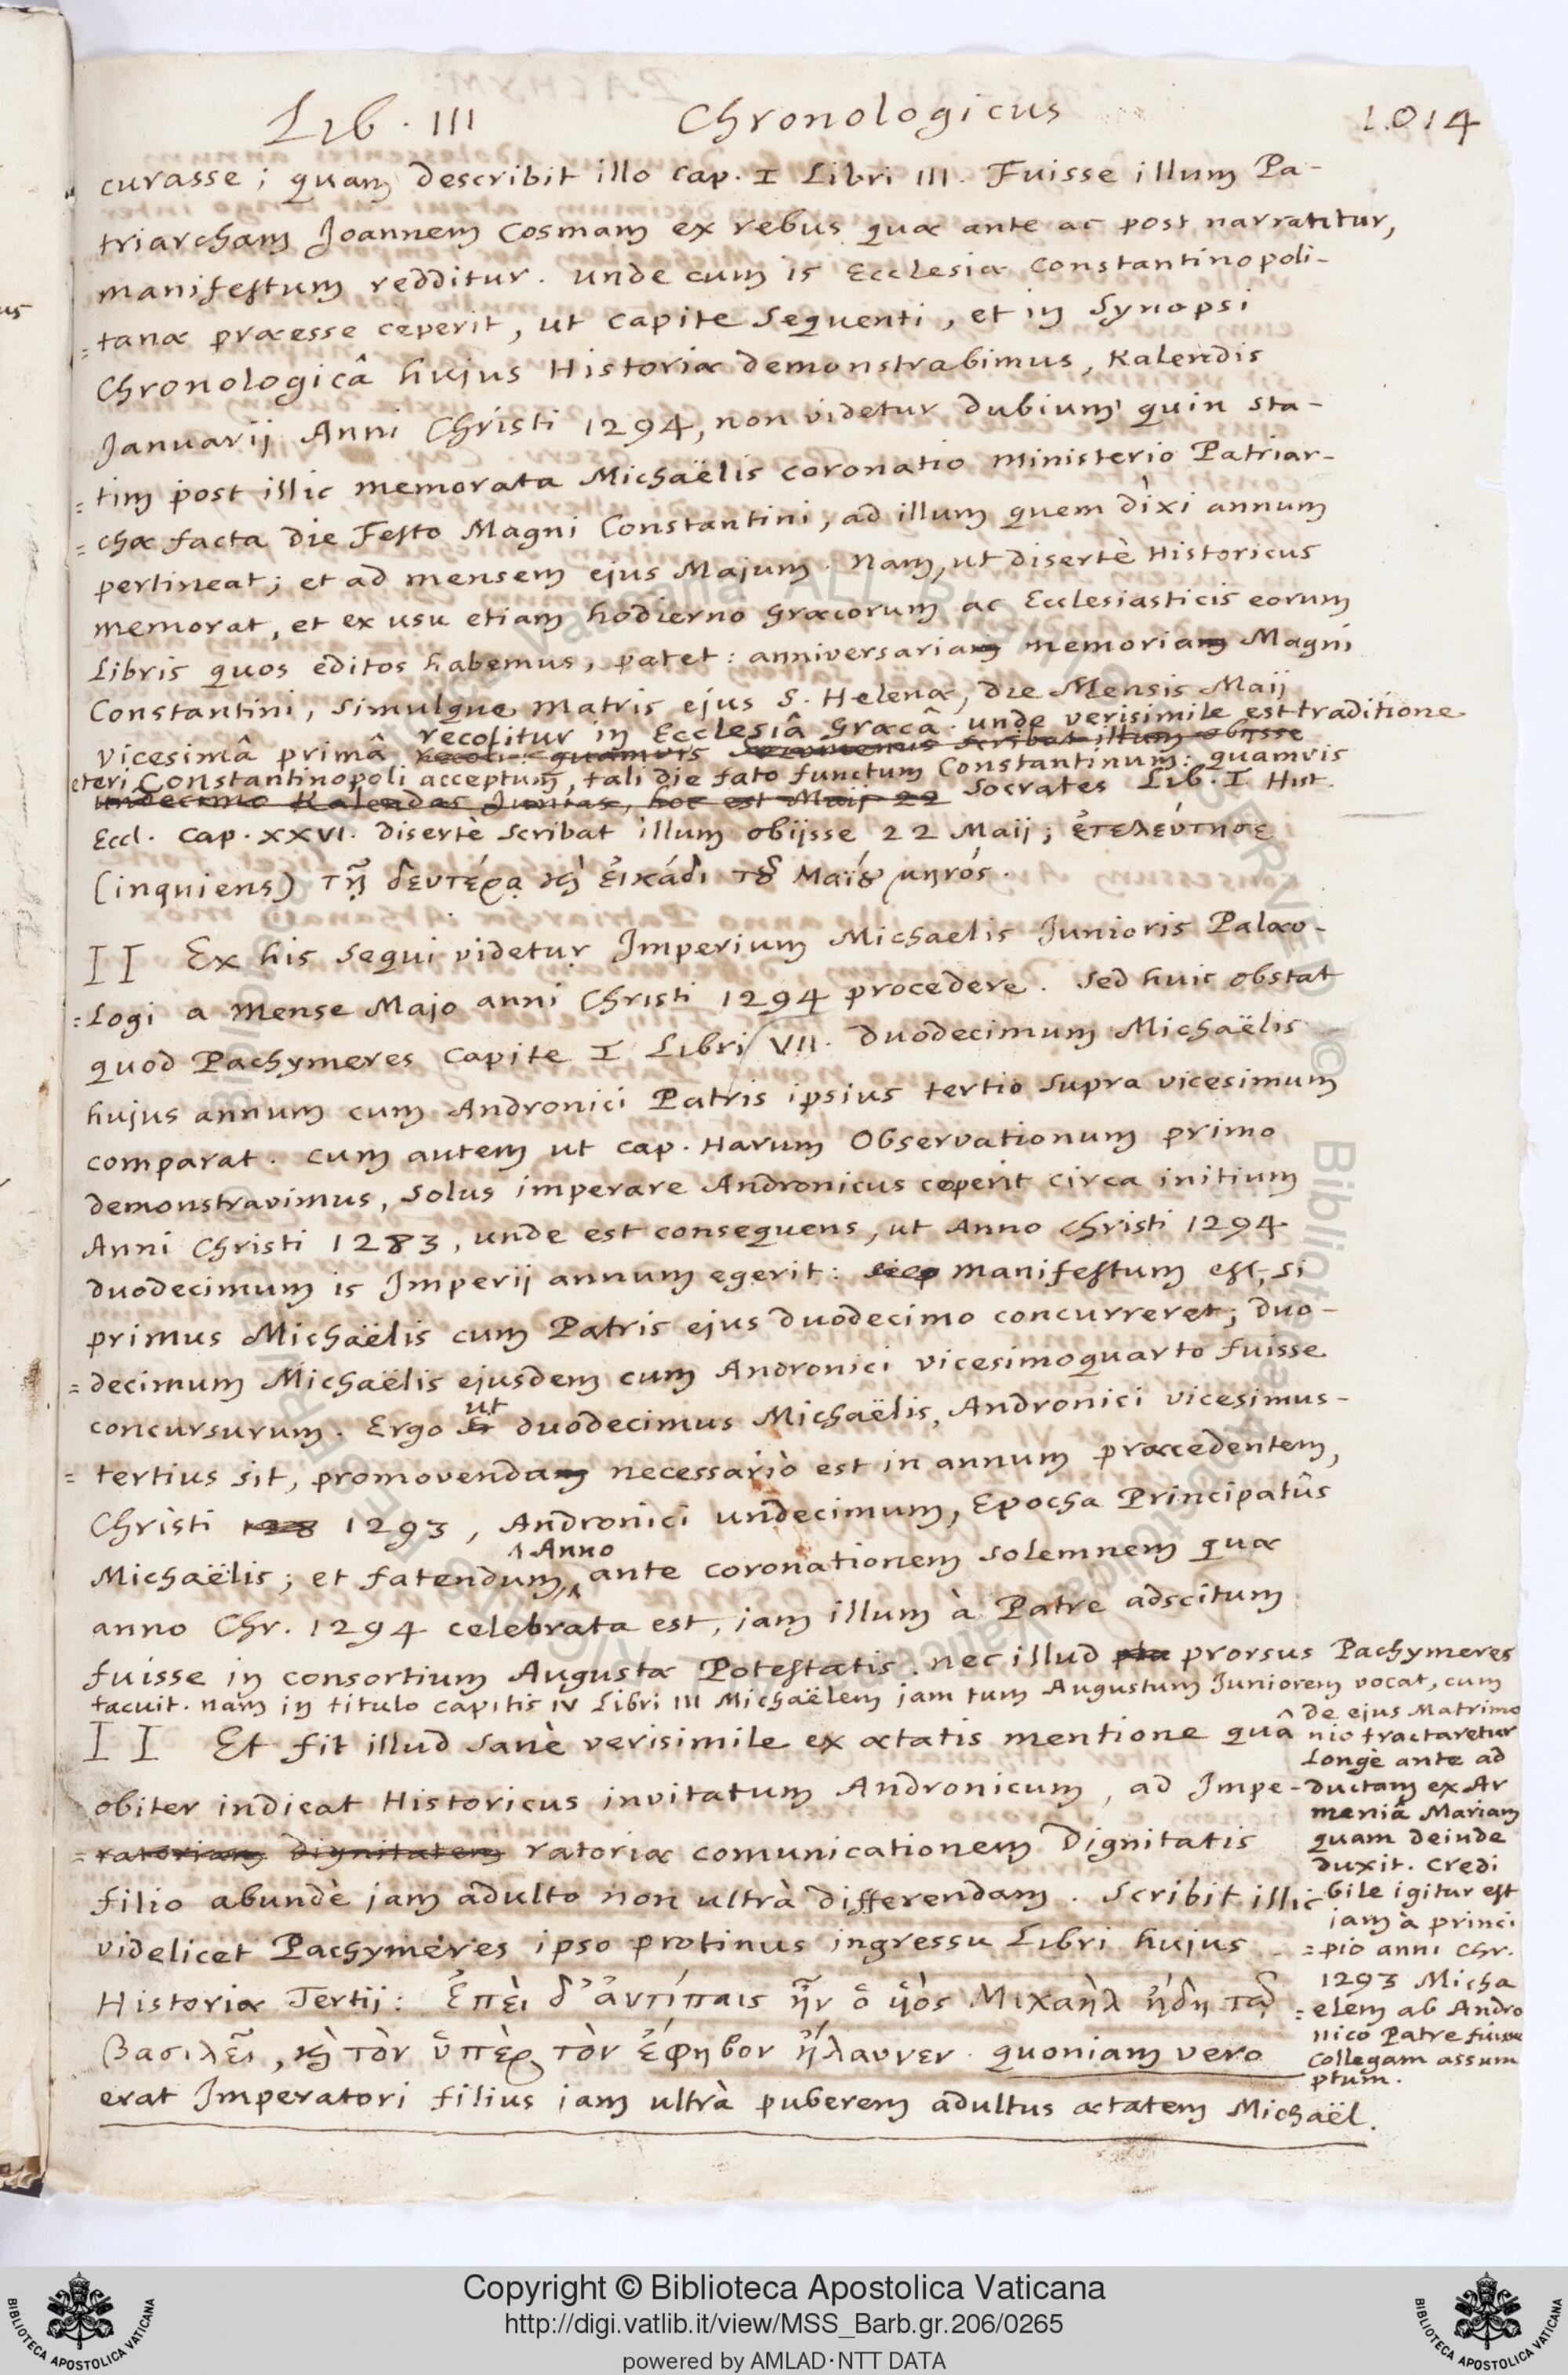 Lib. III Chronologicus 1.014
curasse; quam describit illo cap. I Libri III. Fuisse illum Pa-
triarcham Joannem Cosmam ex rebus quæ ante ac post narrantur,
manifestum redditur. unde cum is Ecclesiæ Constantinopoli-
=tanæ præesse ceperit, ut capite sequenti, et in Synopsi
Chronologicâ hujus Historiæ demonstrabimus, Kalendis
Januarij Anni Christi 1294, non videtur dubium quin sta-
=tim post illic memorata Michaëlis coronatio ministerio Patriar-
=chæ facta die Festo Magni Constantini, ad illum quem dixi annum
pertineat; et ad mensem ejus Majum. nam, ut disertè Historicus
memorat, et ex usu etiam hodierno Græcorum ac Ecclesiasticis eorum
Libris quos editos habemus, patet: anniversaria memoria Magni
Constantini, simulque matris ejus S. Helenæ, die Mensis Maij
recolitur in Ecclesiâ Græcâ. unde verisimile est traditione
vicesimâ primâ recoli. quamvis Sozomenus scribat illum obijsse
eteri Constantinopoli acceptum, tali die fato functum Constantinum: quamvis
undecimo Kalendas Junias, hoc est Maij 22 Socrates Lib. I Hist.
Eccl. cap. XXVI. disertè scribat illum obijsse 22 Maij; ἐτελεύτησε
(inquiens) τῇ δευτέρᾳ καὶ εἰκάδι τοῦ Μαΐου μηνός.
II Ex his sequi videtur Imperium Michaelis Junioris Palæo-
=logi a Mense Majo anni Christi 1294 procedere. Sed huic obstat
quod Pachymeres Capite I Libri VII. duodecimum Michaëlis
hujus annum cum Andronici Patris ipsius tertio supra vicesimum
comparat. cum autem ut cap. Harum Observationum primo
demonstravimus, solus imperare Andronicus ceperit circa initium
Anni Christi 1283, unde est consequens, ut Anno Christi 1294
duodecimum is Imperij annum egerit: manifestum est, si
primus Michaëlis cum Patris ejus duodecimo concurreret, duo-
=decimum Michaëlis ejusdem cum Andronici vicesimoquarto fuisse
concursurum. Ergo ut duodecimus Michaëlis, Andronici vicesimus-
=tertius sit, promovenda necessariò est in annum præcedentem,
Christi 1293, Andronici undecimum, Epocha Principatûs
1 Anno
Michaëlis; et fatendum, ante coronationem solemnem quæ
anno Chr. 1294 celebrata est, jam illum à Patre adscitum
fuisse in consortium Augustæ Potestatis. nec illud prorsus Pachymeres
tacuit. nam in titulo capitis IV Libri III Michaëlem jam tum Augustum Juniorem vocat, cum
de ejus Matrimo
nio tractaretur
longè ante ad
ductam ex Ar
meniâ Mariam
quam deinde
duxit. Credi
bile igitur est
jam à princi
=pio anni Chr.
1293 Micha
=elem ab Andro
nico Patre fuisse
collegam assum
ptum.
II Et fit illud sanè verisimile ex ætatis mentione quâ
obiter indicat Historicus invitatum Andronicum, ad Impe-
=ratoriam dignitatem ratoriæ comunicationem Dignitatis
filio abundè jam adulto non ultrà differendam. Scribit illic
videlicet Pachymeres ipso protinus ingressu Libri hujus
Historiæ Tertij: Ἐπεὶ δ' ἀντίπαις ἦν ὁ ὑὸς Μιχαὴλ ἤδη τῷ
βασιλεῖ, καὶ τὸν ὑπὲρ τὸν ἔφηβον ἤλαυνεν. quoniam vero
erat Imperatori filius jam ultrà puberem adultus ætatem Michaël.
Copyright © Biblioteca Apostolica Vaticana
http://digi.vatlib.it/view/MSS_Barb.gr.206/0265
powered by AMLAD·NTT DATA
BIBLIOTECA APOSTOLICA VATICANA
BIBLIOTECA APOSTOLICA VATICANA